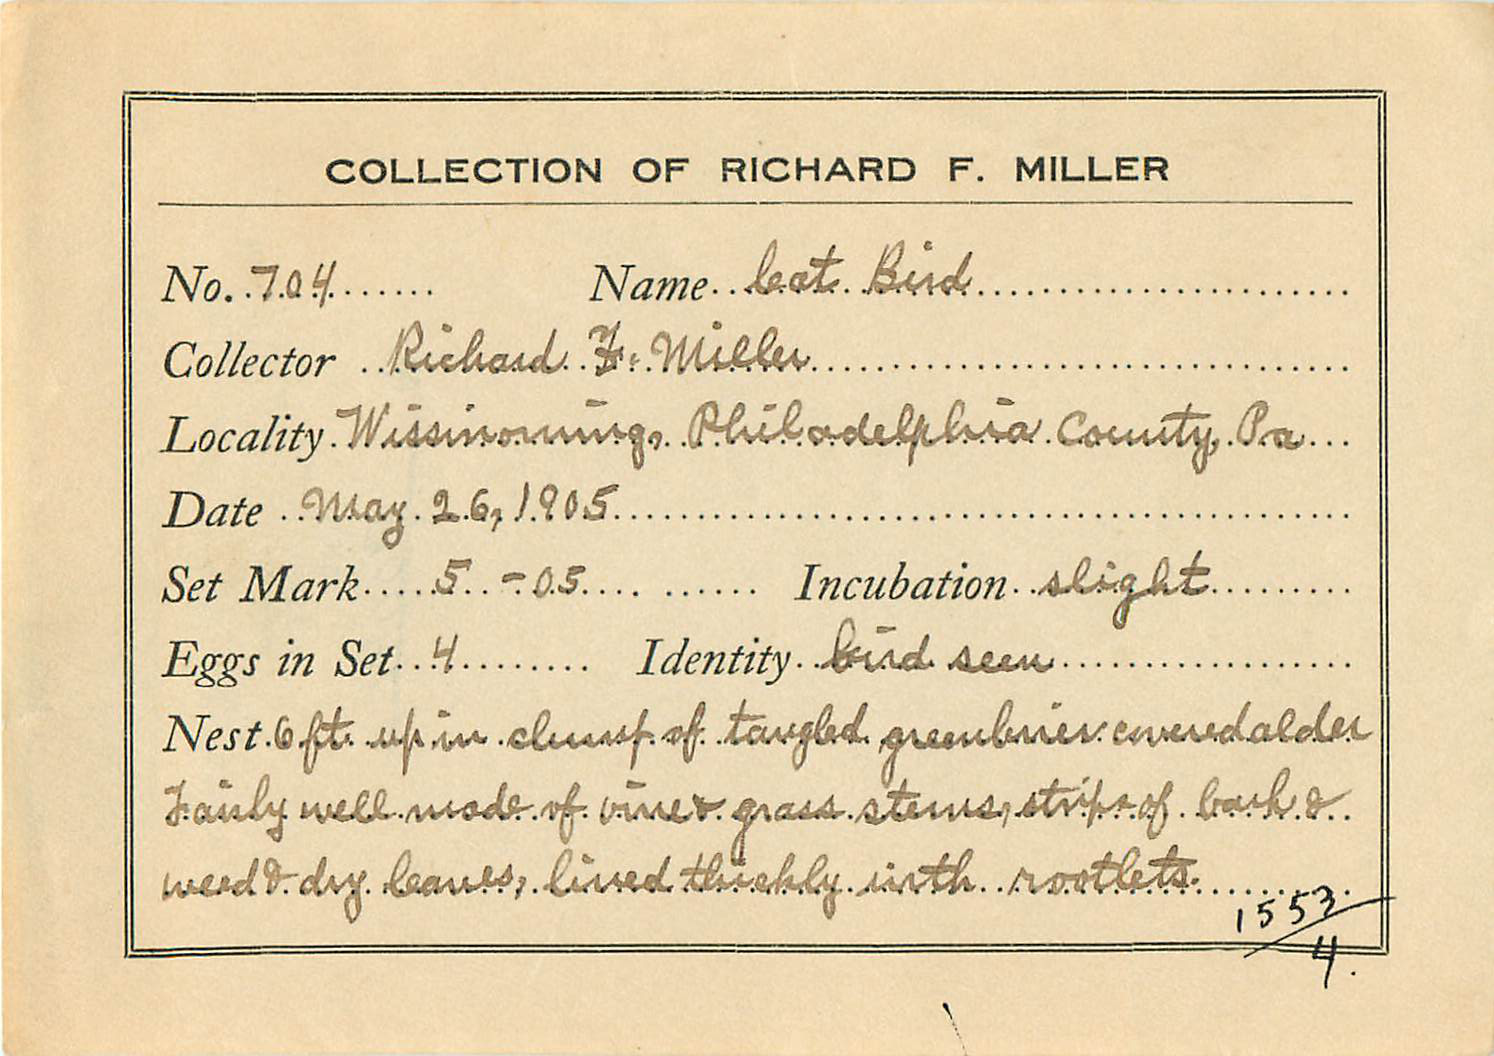 COLLECTION OF RICHARD F. MILLER
No. 704 Name Cat Bird
Collector Richard F. Miller
Locality Wissinoming, Philadelphia County, Pa
Date May 26, 1905
Set Mark 5 - 05 Incubation slight
Eggs in Set 4 Identity bird seen
Nest 6 ft. up in clump of tangled greenbrier covered alder
Fairly well made of vine & grass stems, strips of bark &
weed & dry leaves, lined thickly with rootlets.
1553/4.